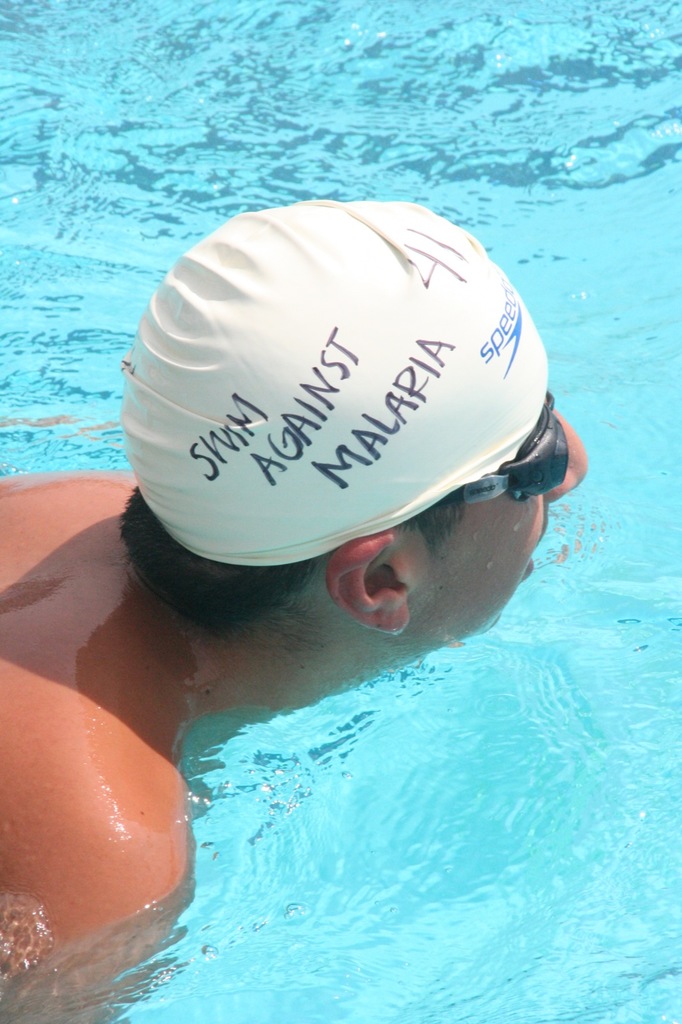 41
speedo
SWIM
AGAINST
MALARIA
speedo